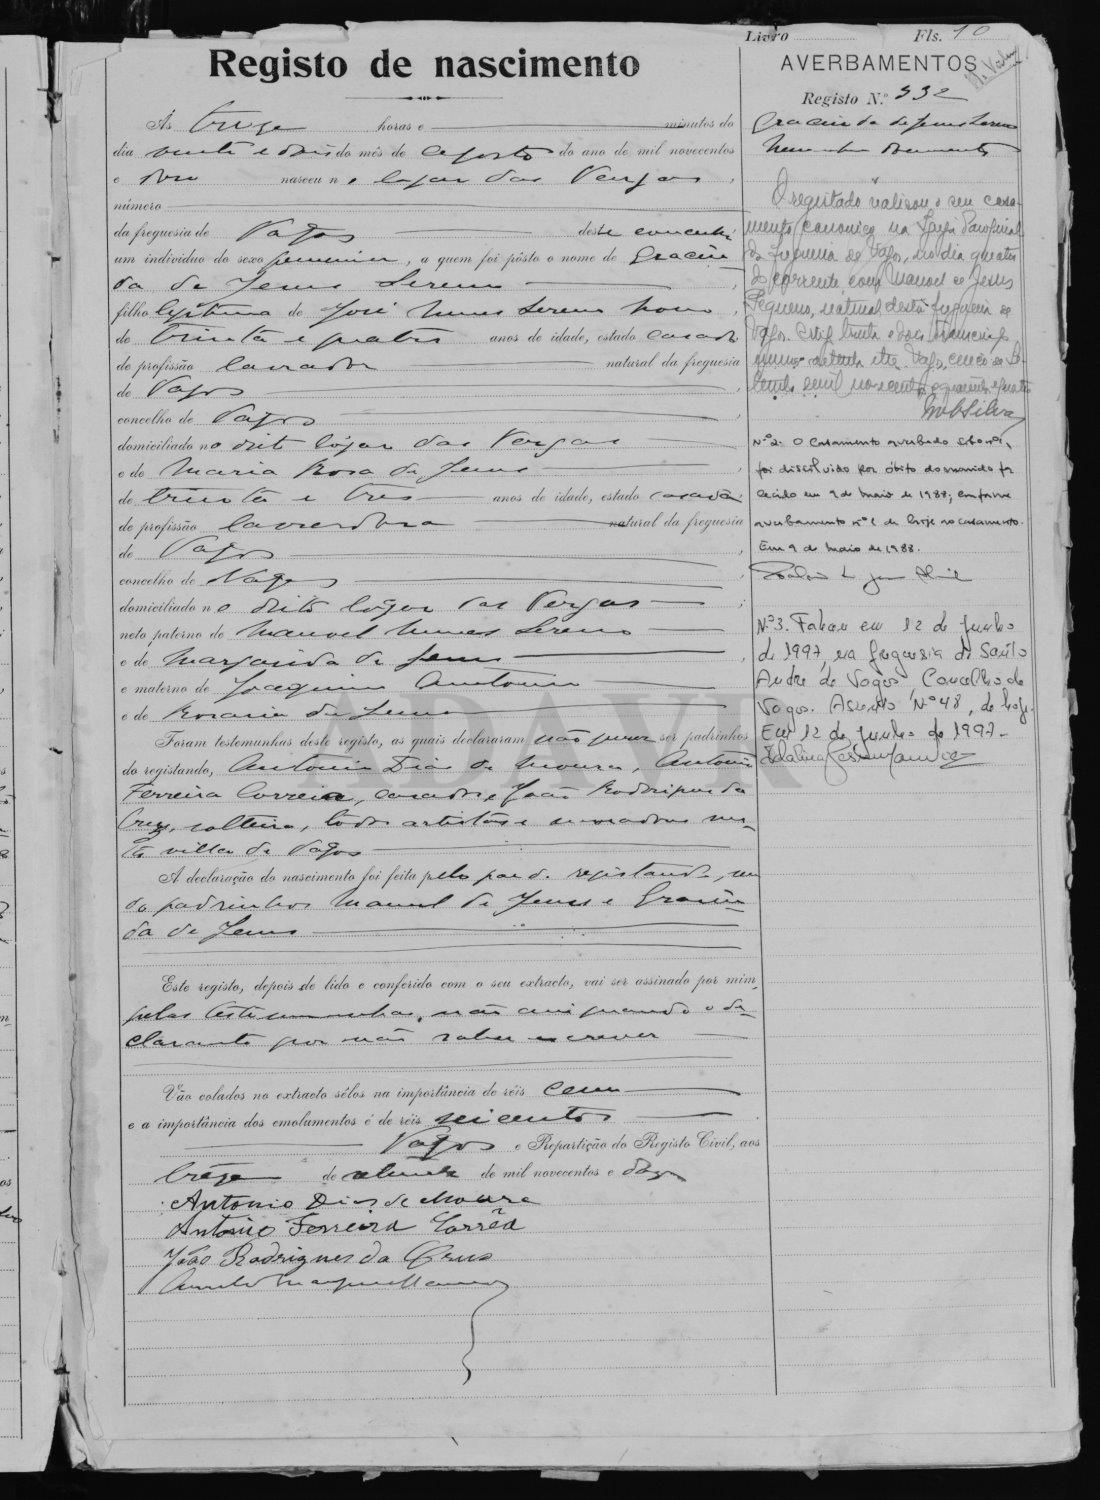 Livro Fls. 10
Registo de nascimento
Ás treze horas e minutos do
dia vinte e dois do mês de Agosto do ano de mil novecentos
e doze nasceu no lugar das Vergas,
número
da freguesia de Vagos deste concelho
um indivíduo do sexo femenino, a quem foi pôsto o nome de Gracin
da de Jesus Sereno
filho legitima de José Nunes Sereno Novo,
de trinta e quatro anos de idade, estado casado
de profissão lavrador natural da freguesia
de Vagos
concelho de Vagos
domiciliado no dito lôgar das Vergas
e de Maria Rosa de Jesus,
de trinta e tres anos de idade, estado casada
de profissão lavradora natural da freguesia
de Vagos,
concelho de Vagos
domiciliado no dito lôgar das Vergas;
neto paterno de Manuel Nunes Sereno
e de Margarida de Jesus,
e materno de Joaquim Antonio
e de Rosaria de Jesus
Foram testemunhas deste registo, as quais declararam não ser padrinhos
do registando, Antonio Dias de Moura, Antonio
Ferreira Correia, casados, e João Rodrigues da
Cruz, solteiro, todos artistas e moradores nes-
ta villa de Vagos
A declaração do nascimento foi feita pelo pae do registando, sen
do padrinhos Manuel de Jesus e Gracin-
da de Jesus
Este registo, depois de lido e conferido com o seu extracto, vai ser assinado por mim,
pelas testemunhas, não assignando o de-
clarante por não saber escrever
Vão colados no extracto sêlos na importância de réis cem
e a importância dos emolumentos é de réis seicentos
Vagos e Repartição do Registo Civil, aos
treze de de mil novecentos e doze
Antonio Dias de Moura
António Ferreira Corrêa
João Rodrigues da Cruz
AVERBAMENTOS
Registo N.º 332
Gracinda de Jesus Sereno
O registado realisou o seu casa-
mento canonico na Igreja Paroquial
da freguesia de Vagos, no dia quatro
do corrente, com Manoel de Jesus
Pequeno, natural desta freguesia de
Vagos.
Vagos, cinco de Se-
tembro mil novecentos e quarenta e quatro
Nº2- O casamento averbado sob nº1,
foi dissolvido por óbito do marido fa
lecido em 9 de Maio de 1988, conforme
averbamento nº1 de hoje no casamento.
Em 9 de Maio de 1988.
Nº3. Faleceu em 12 de Junho
de 1997, na freguesia de Santo
André de Vagos Concelho de
Vagos. Assento Nº48, de hoje.
Em 12 de Junho de 1997-
ADAVR